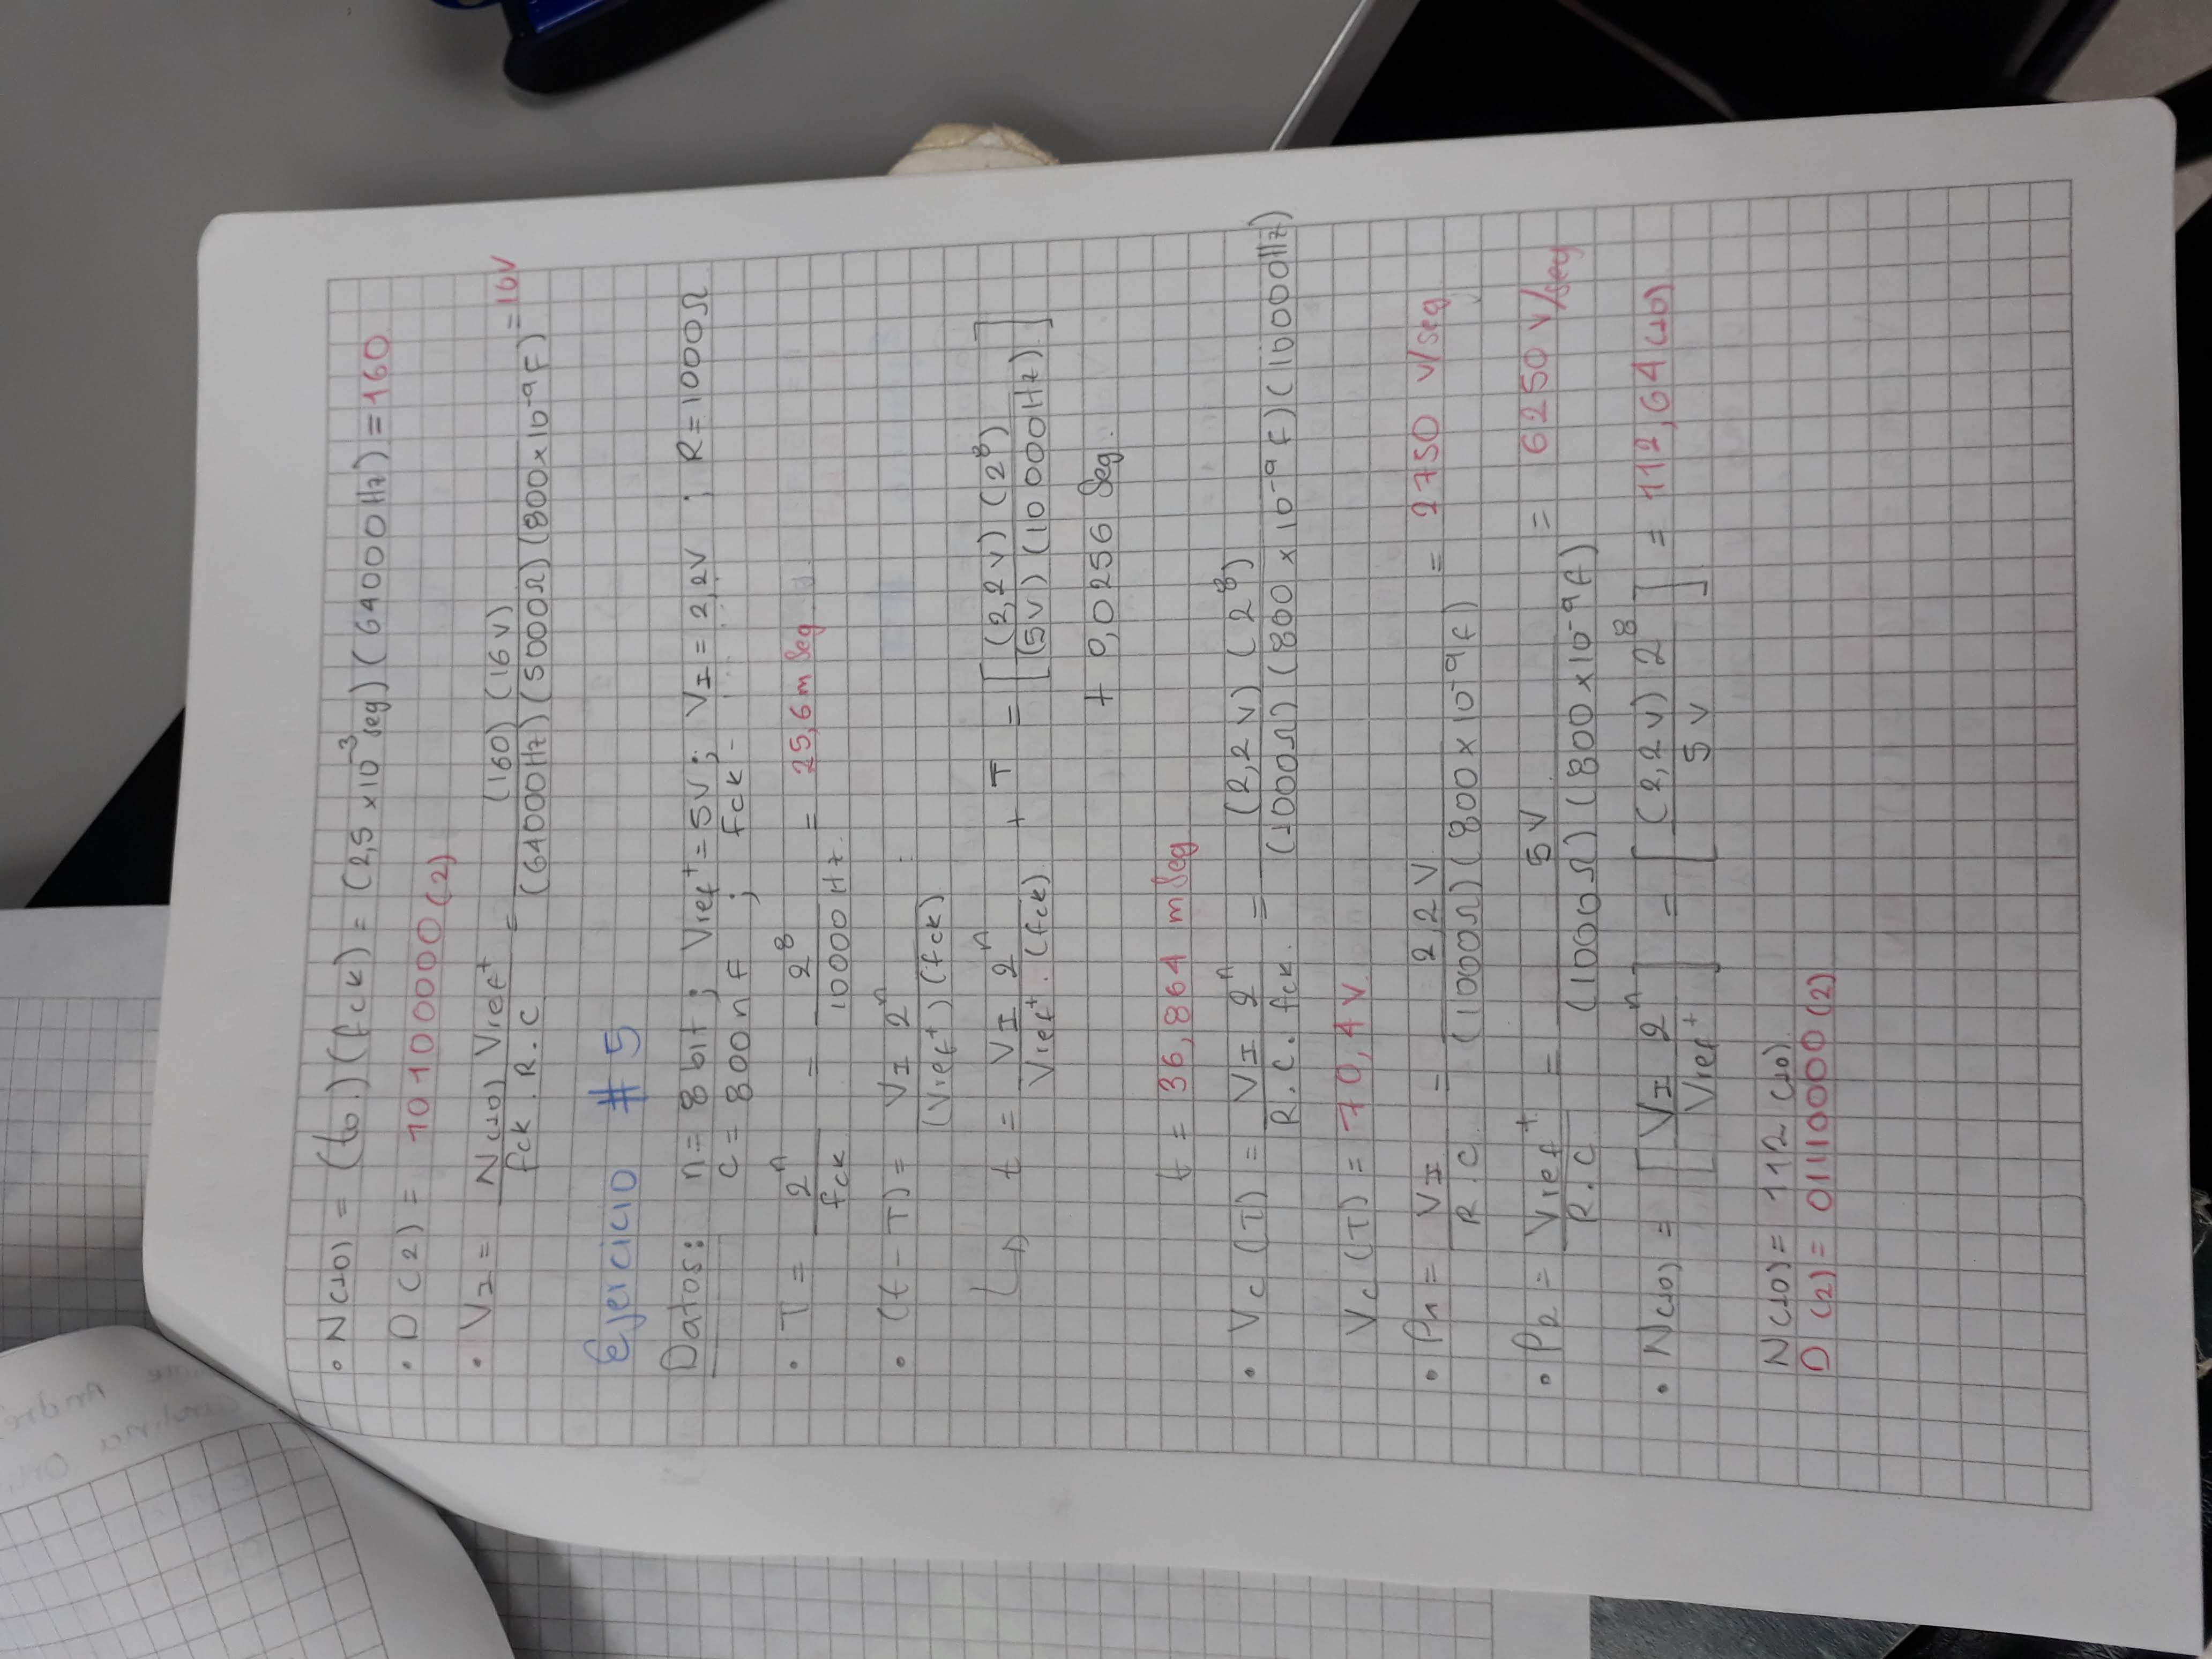 • N(10) = (to)(fck) = (2,5 x10⁻³seg)(64000Hz) = 160
• D(2) = 10100000(2)
• VI = N(10) Vref⁺ / fck . R . C = (160)(16V) / (64000Hz)(5000Ω)(800x10⁻⁹F) = 16V
Ejercicio #5
Datos: n= 8 bit ; Vref⁺= 5V ; VI = 2,2V ; R=1000Ω
C= 800nF ; fck -
• T = 2ⁿ / fck = 2⁸ / 10000Hz = 25,6 m Seg
• (t-T) = VI 2ⁿ / (Vref⁺)(fck)
↳ t = VI 2ⁿ / Vref⁺ . (fck) + T = [(2,2V)(2⁸) / (5V)(10000Hz)]
+ 0,0256 Seg.
t = 36,864 mSeg
• Vc(T) = VI 2ⁿ / R.C.fck. = (2,2V)(2⁸) / (1000Ω)(800x10⁻⁹F)(10000Hz)
Vc(T) = 70,4 V.
• P1 = VI / R.C. = 2,2V / (1000Ω)(800x10⁻⁹F) = 2750 V/seg
• P2 = Vref⁺ / R.C. = 5V / (1000Ω)(800x10⁻⁹F) = 6250 V/seg
• N(10) = [VI 2ⁿ / Vref⁺] = [(2,2V) 2⁸ / 5V] = 112,64(10)
N(10) = 112(10).
D(2) = 01110000(2)